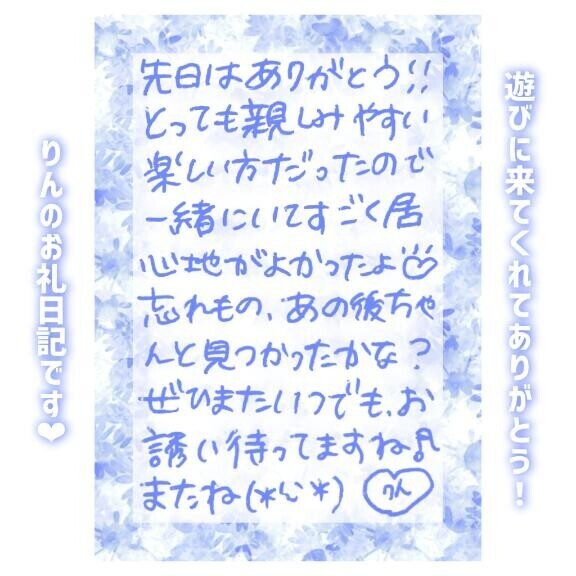 遊びに来てくれてありがとう！
先日はありがとう!!
とっても親しみやすい
楽しい方だったので
一緒にいてすごく居
心地がよかったよ♡
忘れもの、あの後ちゃ
んと見つかったかな?
ぜひまたいつでも、お
誘い待ってますね♬
またね(*^^*) りん
りんのお礼日記です❤